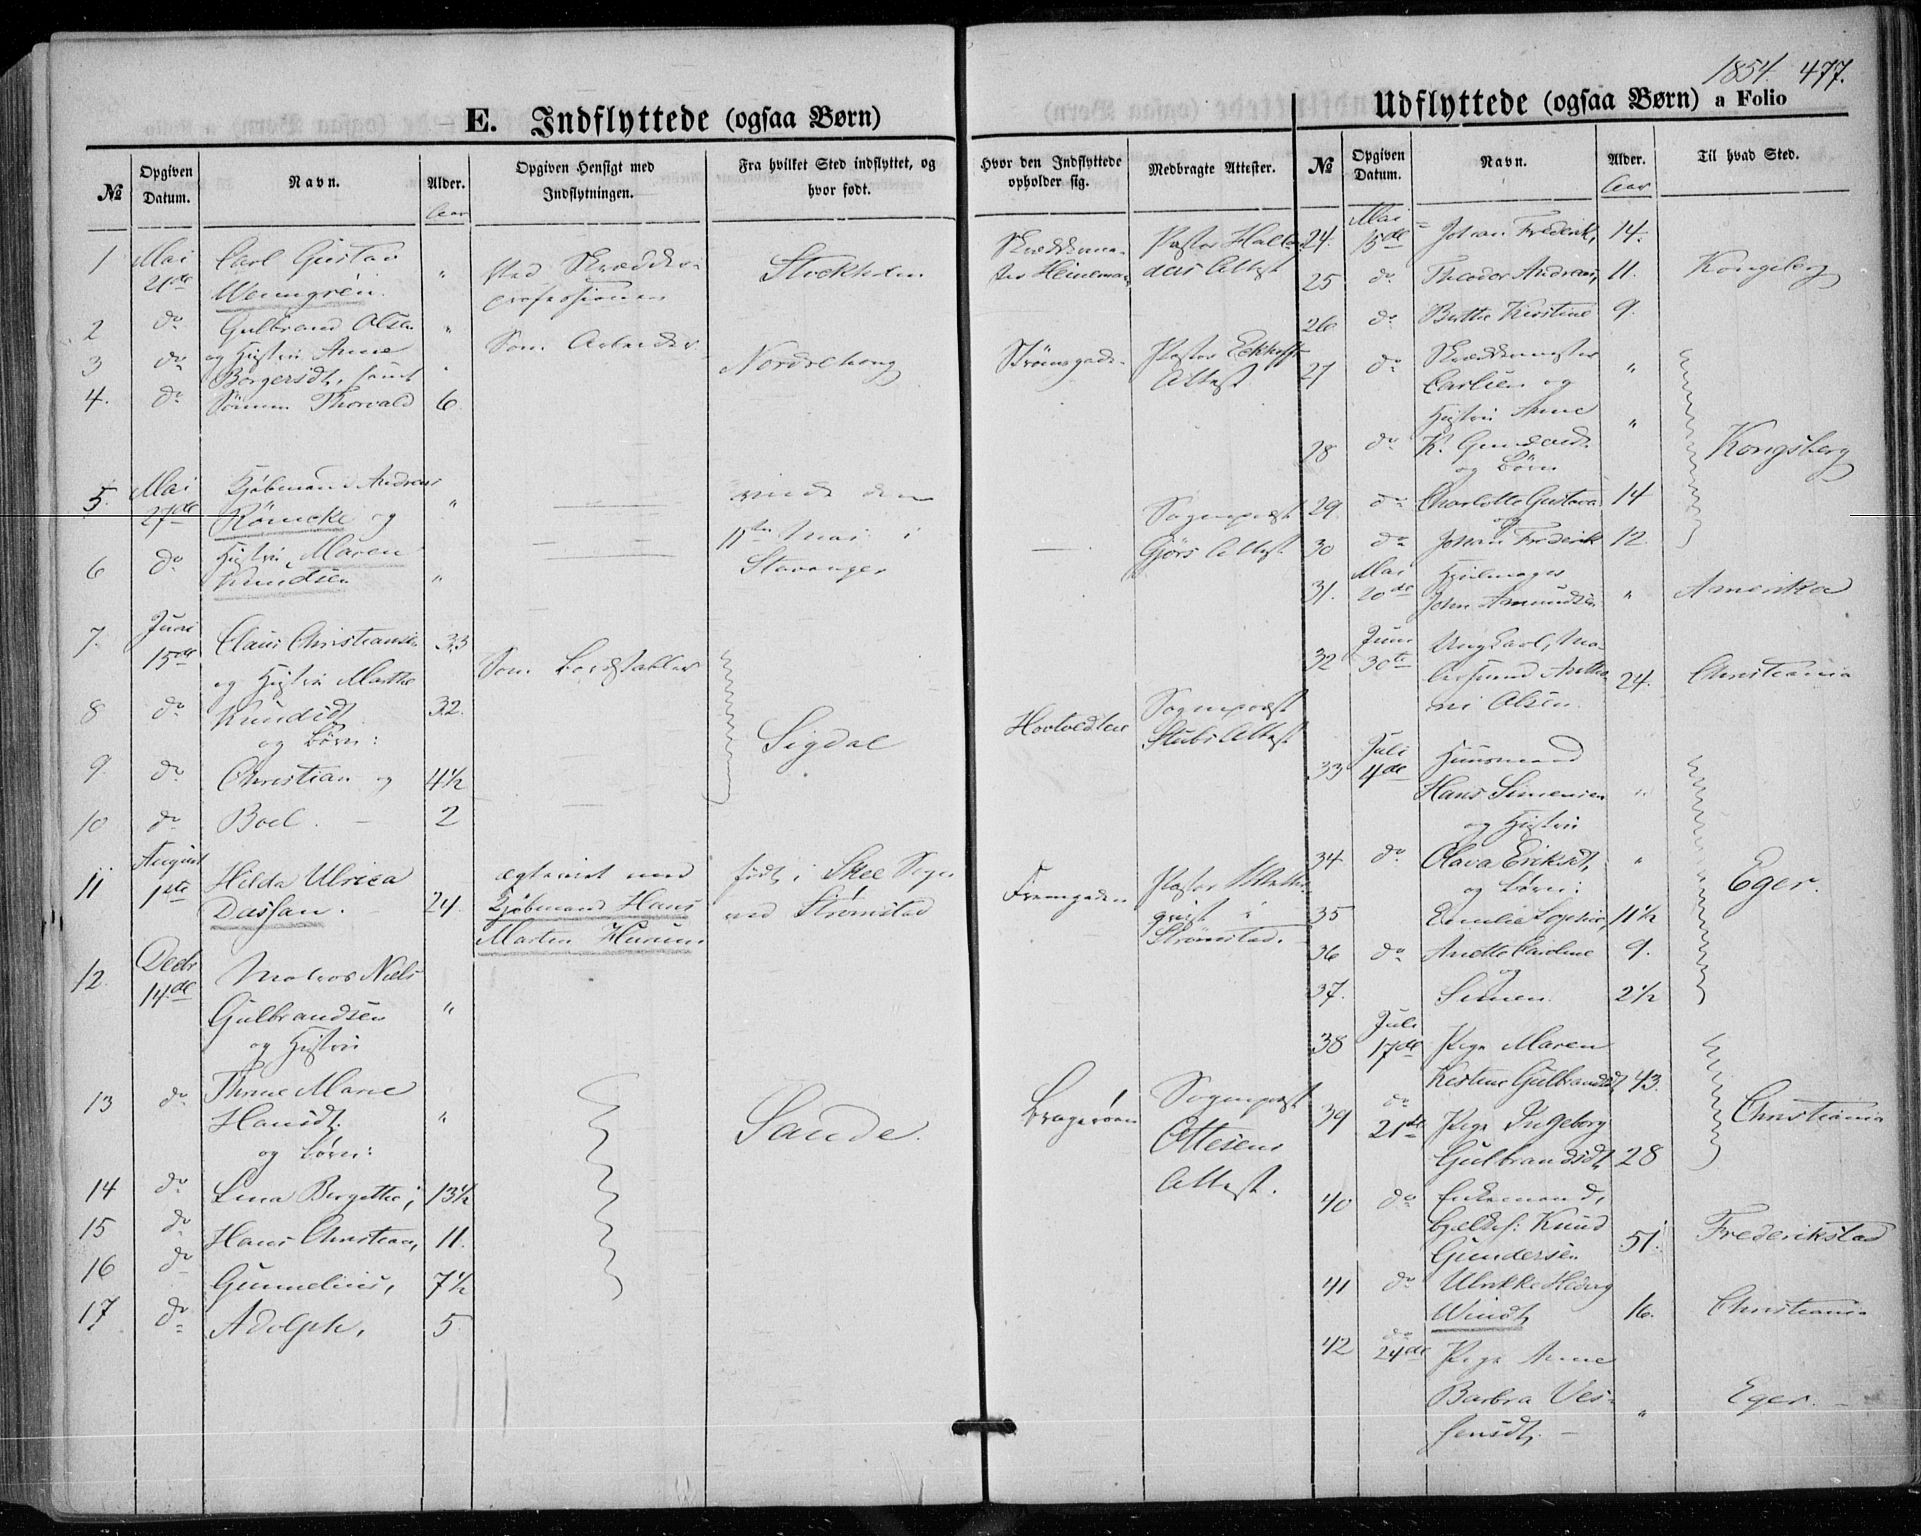 1854. 477.
E. Indflyttede (ogsaa Børn)
Udflyttede (ogsaa Børn) a Folio
№ Opgiven Datum. Navn. Alder. Opgiven Hensigt med Indflytningen. Fra hvilket Sted indflyttet, og hvor født. Hvor den Indflyttede opholder sig. Medbragte Attester.
Aar
1 Mai 21de Carl Gustav " Stockholm
Wenngrén. professionen
2 do Gulbrand Olsen " Som Arbeider Nordrehoug Strømsgade Pastor Eckhoff
3 do og Hustru Anne " Attest
Børgersdt, samt
4. do Sönnen Thorvald 6
5. Mai 27de Kjøbmand Andreas "
Römcke og
11te Mai i Sogneprest
6 do Hustru Maren " Stavanger Gjörs Attest
Knudsen
7. Juni 15de Claus Christiansen 33
og Hustru Marthe
8 do Knudsdt 32. Sigdal Sogneprest
og Børn: Stubs Attest
9 do Christian og 4½
10 do Boel. 2
11 August 1ste Hilda Ulrica 24. ægteviet med født i Skee Sogn Pastor
Dassan. Kjøbmand Hans ved Strømstad i
Morten Husum. Strømstad.
12. Decbr 14de Niels "
Gulbrandsen
og Hustru
13 do Thrine Marie " Sande. Bragerøen Sogneprest
Hansdt. Ottesens
og Børn: Attest.
14 do Lina Bergitte, 13½
15 do Hans Christian, 11.
16 do Gunnelius, 7½
17 do Adolph, 5
№ Opgiven Datum. Navn. Alder. Til hvad Sted.
Aar
24. Mai 15de Johan Frederik, 14.
25 do Theodor Andreas, 11. Kongsberg
26 do Berthe Kirstine 9.
27 do Skreddermester "
Carlsen og
Hustru Anne
28 do K. Gundersdt. " Kongsberg
og Børn
29. do Charlotte Gustava 14
og
30 do Johan Frederik 12
31. Mai 20de Hjulmager
John Amundsen " Amerika
32 Juni 30te Ungkarl,
Olsen 24. Christiania
33 Juli 4de Huusmand
Hans Simensen "
og Hustru
34 do Olava Eriksdt, " Eger.
og Børn:
35 Emilie Sophie, 11½
36 do Anette Caroline 9.
og
37. Simen. 2½
38 Juli 17de Pige Maren
Kirstine Gulbrandsdt 43.
39 do 21de Pige Ingeborg Christiania
Gulbrandsdt, 28
40 do Enkemand,
Knud
Gundersen 51. Frederikstad
41 do Ulrikke Hedvig
Windt, 16. Christiania
42 do 24de Pige Anne
Barbra " Eger.